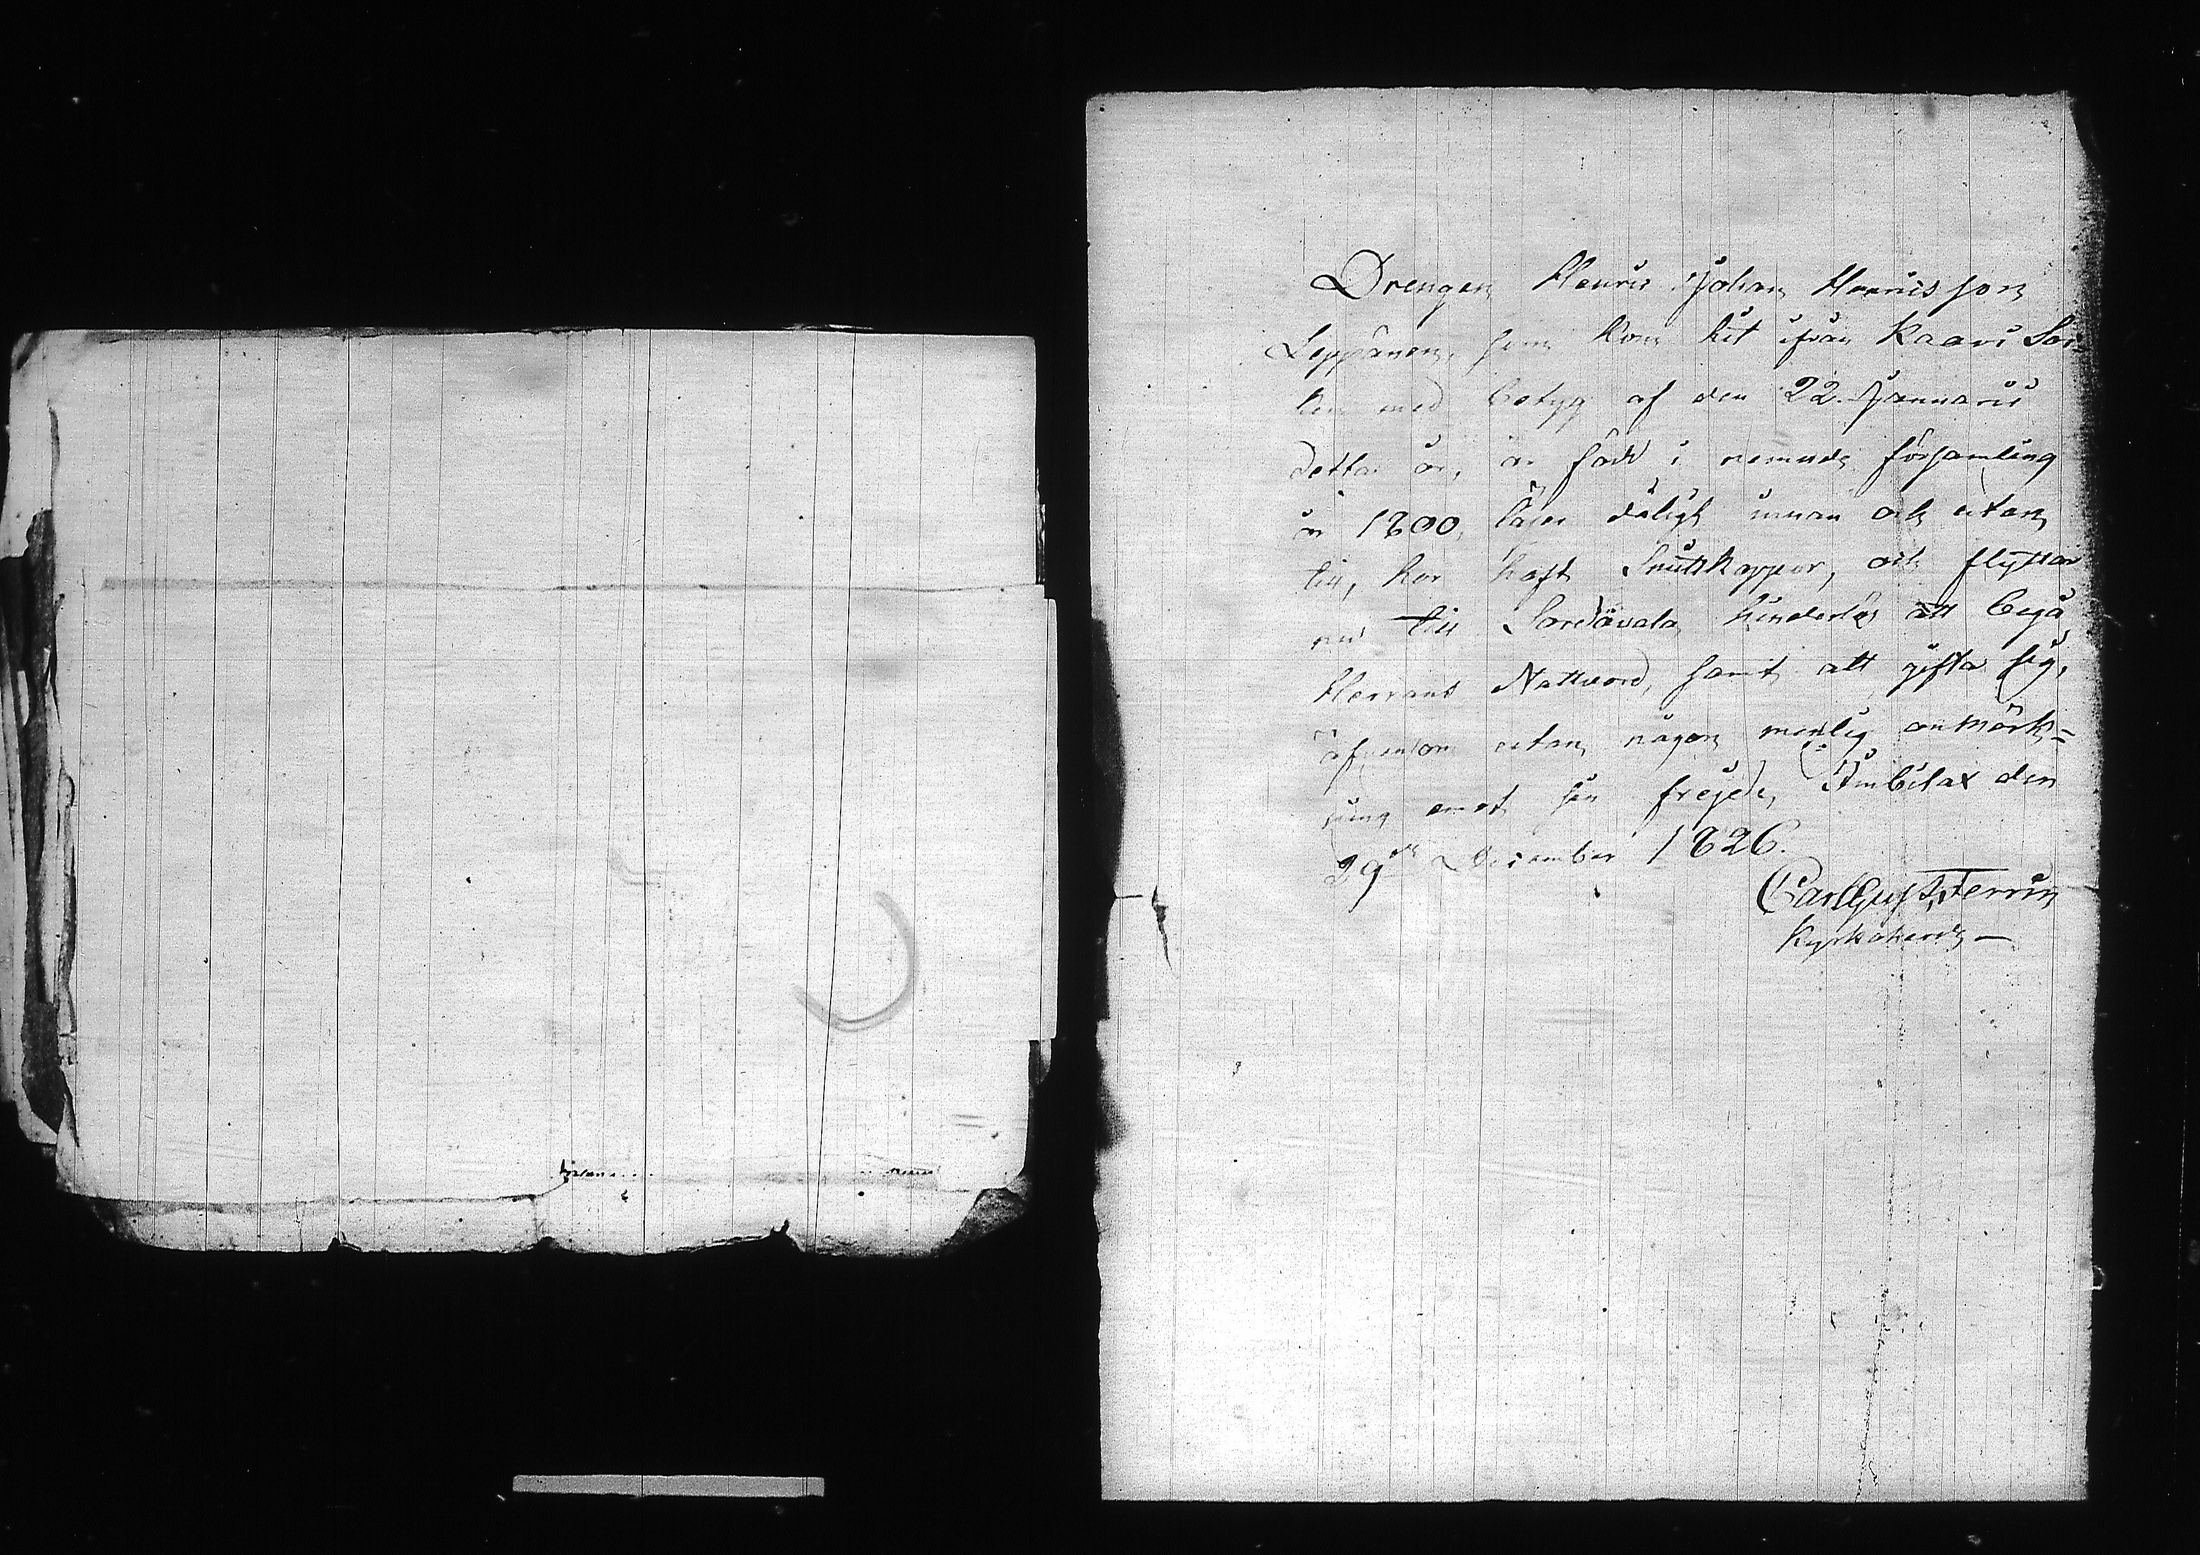 Drengen Henric Johan Henricsson
Leppänen, som kom hit ifrån Kaavi Soc-
ken med betyg af den 22. Januarii
detta år, är född i nemnde församling
år 1800, läser dåligt innan och utan
till, har haft Smittkoppor, och flyttar
nu till Sordavala hinderlös att begå
Herrans Nattvard, samt att gifta sig,
äfvensom utan någon menlig anmärk-
ning emot sin frejd, Imbilax den
29de December 1826.
Carl Gust. Ferrin
Kyrkoherde